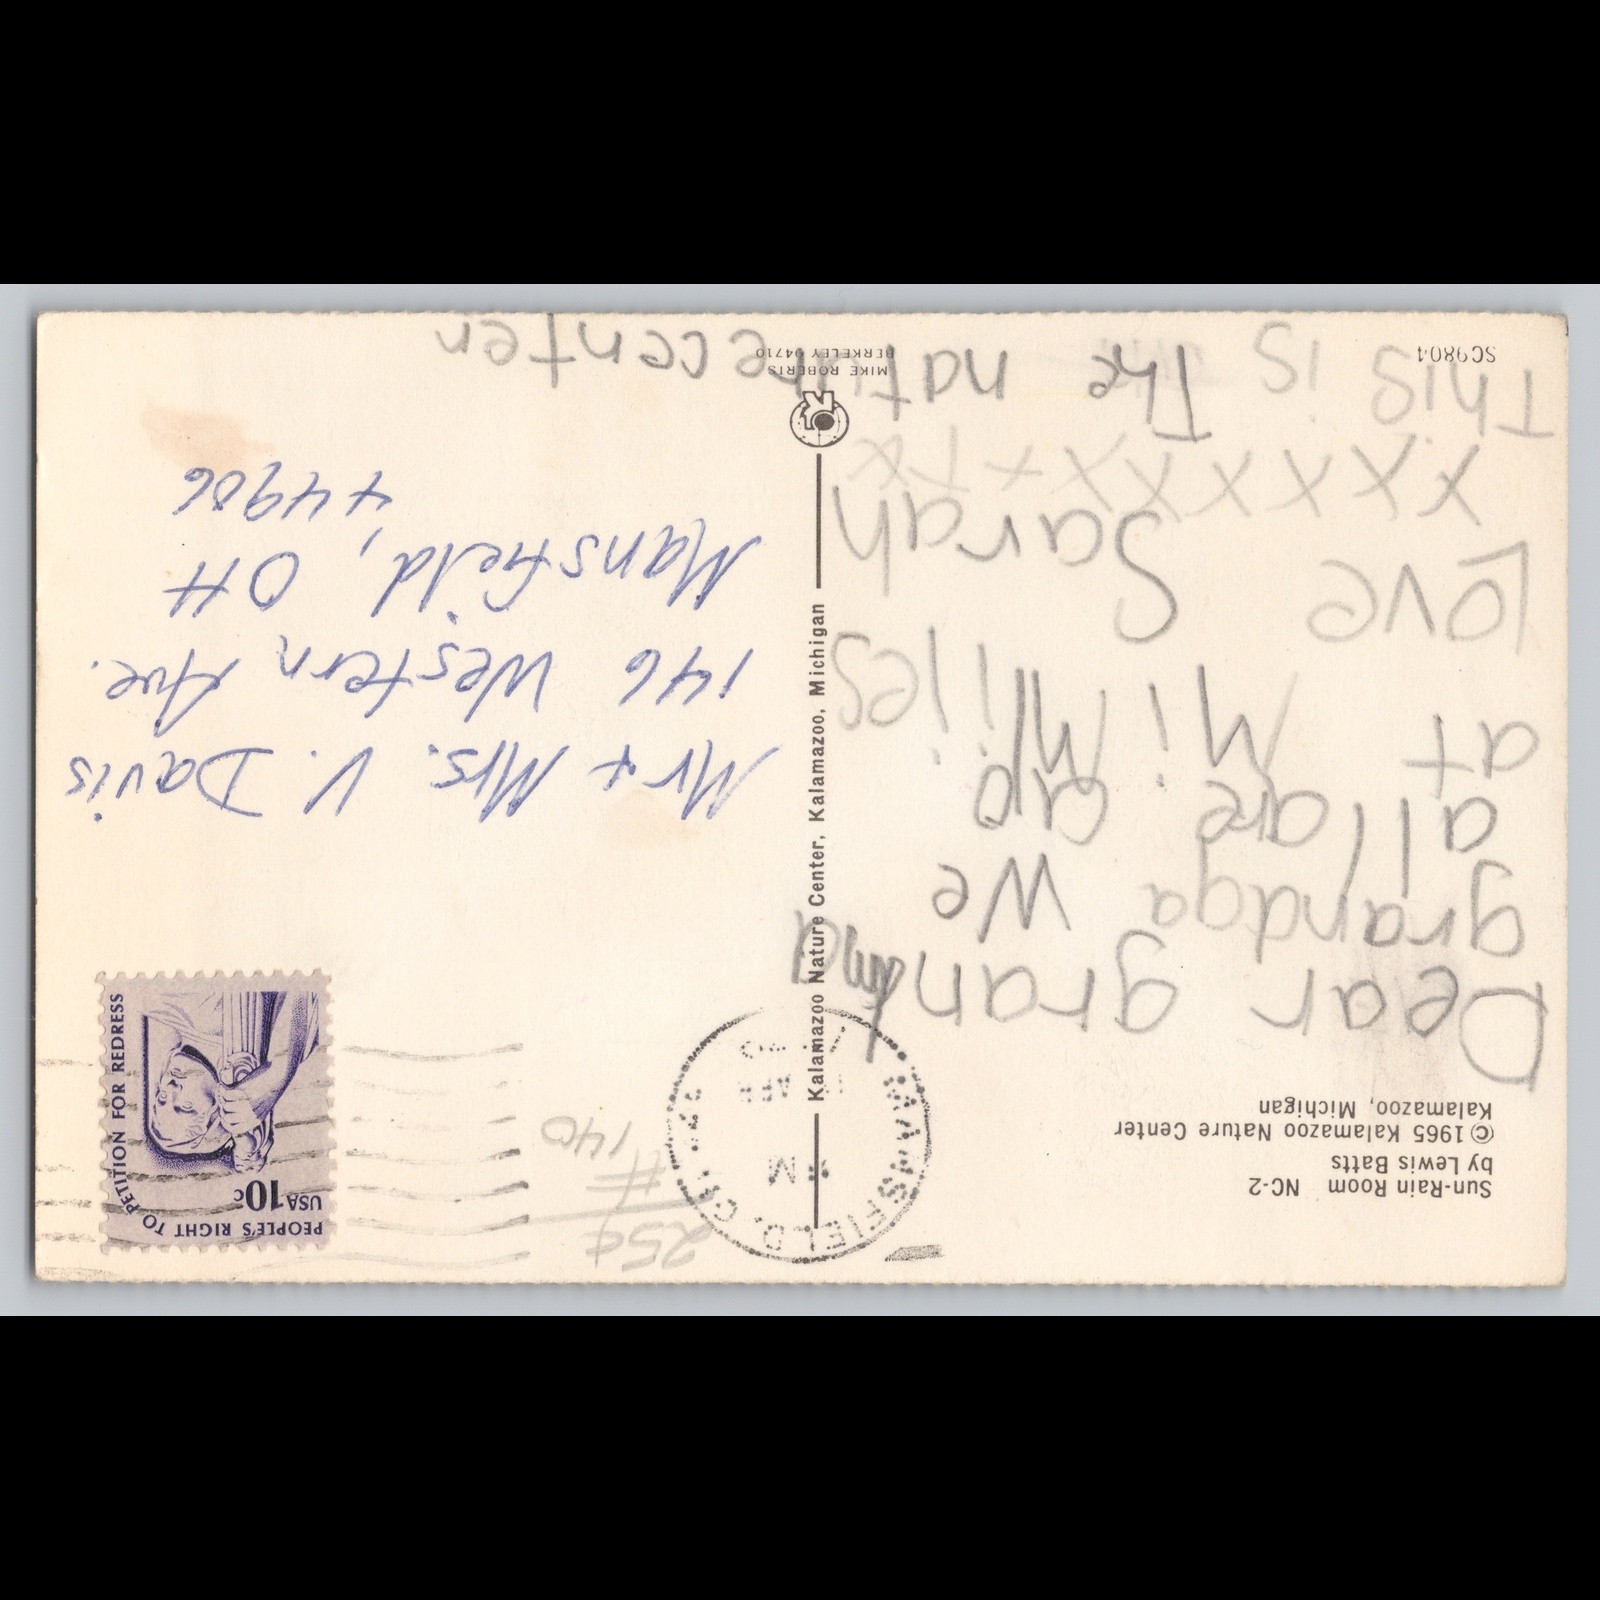 Sun-Rain Room NC-2
by Lewis Batts
©1965 Kalamazoo Nature Center
Kalamazoo, Michigan
Dear grandma
grandga we
all are
at Mi Miles
Love Sarah
x X X X X X X + + x x
This is The nature center
SC9804
Kalamazoo Nature Center, Kalamazoo, Michigan
MIKE ROBERTS
BERKELEY 94710
MANSFIELD, OH
25¢
#
140
PEOPLE'S RIGHT TO PETITION FOR REDRESS
USA 10c
Mr + Mrs. V. Davis
146 Western Ave.
Mansfield, OH
44906